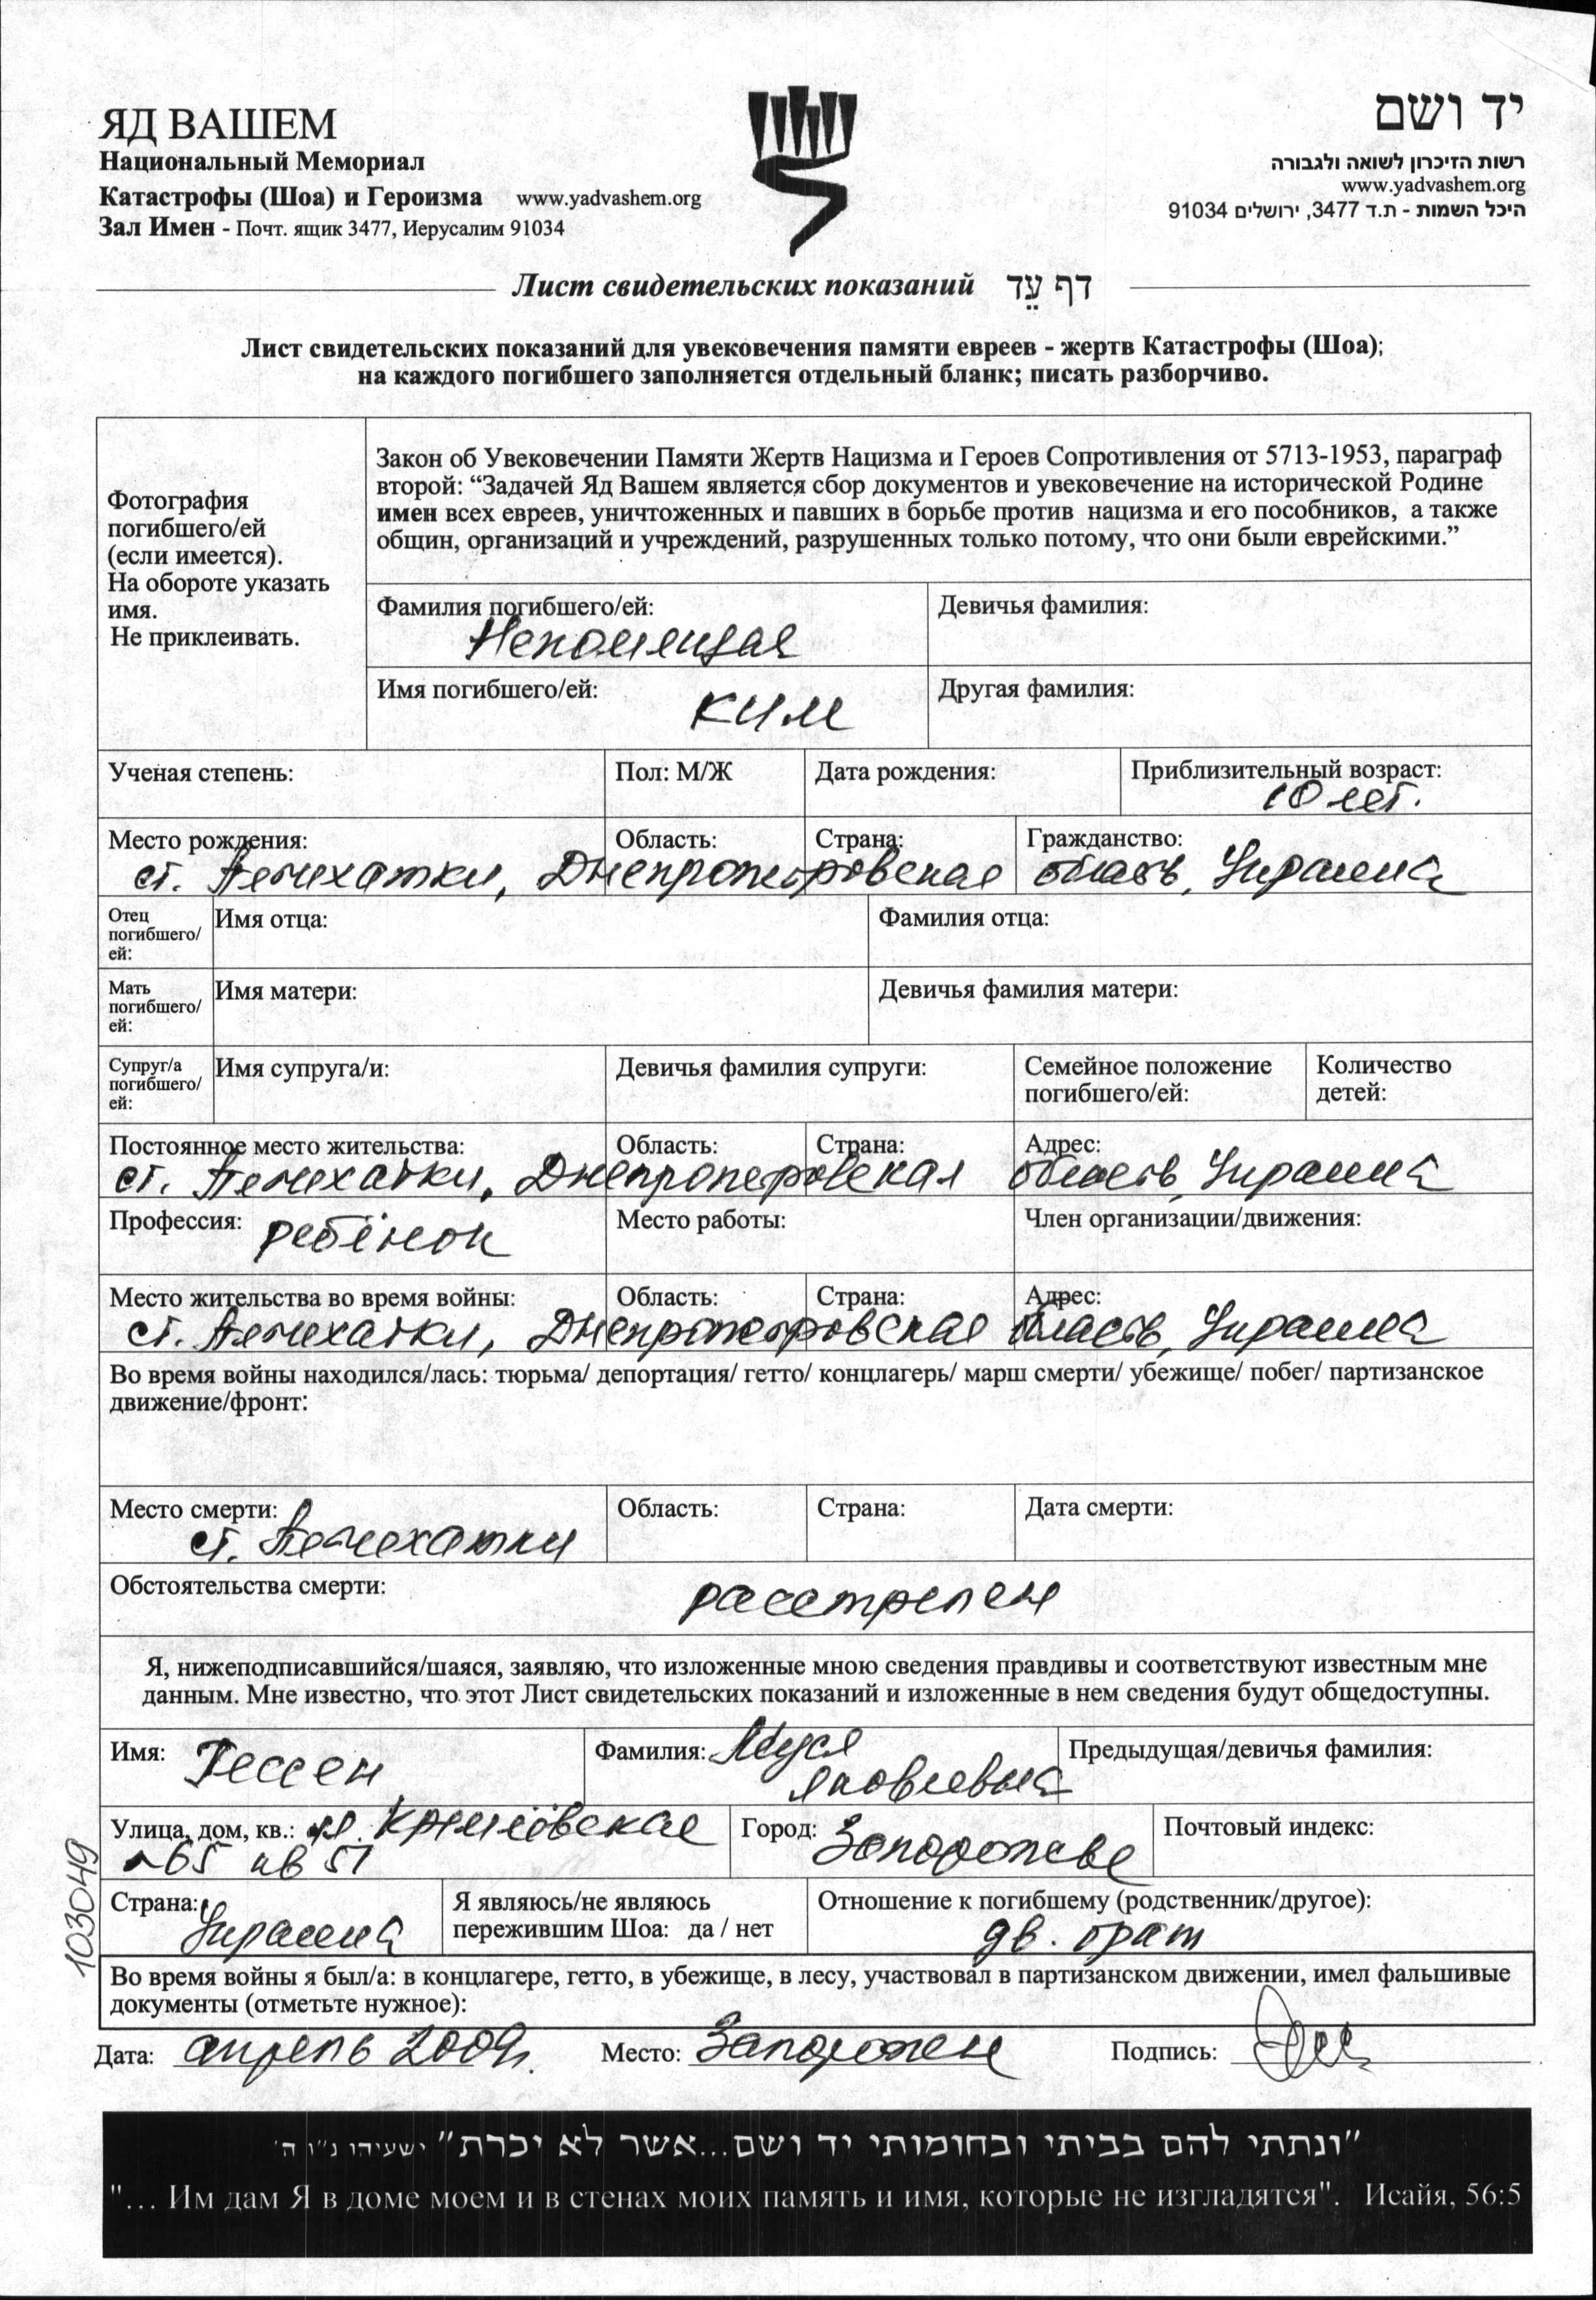 ЯД ВАШЕМ
Национальный Мемориал
Катастрофы (Шоа) и Героизма www.yadvashem.org
Зал Имен - Почт. ящик 3477, Иерусалим 91034
יד ושם
רשות הזיכרון לשואה ולגבורה
www.yadvashem.org
היכל השמות - ת.ד 3477, ירושלים 91034
Лист свидетельских показаний דף עֵד
Лист свидетельских показаний для увековечения памяти евреев - жертв Катастрофы (Шоа);
на каждого погибшего заполняется отдельный бланк; писать разборчиво.
Фотография
погибшего/ей
(если имеется).
На обороте указать
имя.
Не приклеивать.
Закон об Увековечении Памяти Жертв Нацизма и Героев Сопротивления от 5713-1953, параграф
второй: “Задачей Яд Вашем является сбор документов и увековечение на исторической Родине
имен всех евреев, уничтоженных и павших в борьбе против нацизма и его пособников, а также
общин, организаций и учреждений, разрушенных только потому, что они были еврейскими.”
Фамилия погибшего/ей: Девичья фамилия:
Непомящая
Имя погибшего/ей: Другая фамилия:
Ким
Ученая степень: Пол: М/Ж Дата рождения: Приблизительный возраст:
10 лет.
Место рождения: Область: Страна: Гражданство:
ст. Пятихатки, Днепропетровская область, Украина
Отец
погибшего/
ей:
Имя отца: Фамилия отца:
Мать
погибшего/
ей:
Имя матери: Девичья фамилия матери:
Супруг/а
погибшего/
ей:
Имя супруга/и: Девичья фамилия супруги:
Семейное положение
погибшего/ей:
Количество
детей:
Постоянное место жительства: Область: Страна: Адрес:
ст. Пятихатки, Днепропетровская область, Украина
Профессия: ребёнок Место работы: Член организации/движения:
Место жительства во время войны: Область: Страна: Адрес:
ст. Пятихатки, Днепропетровская область, Украина
Во время войны находился/лась: тюрьма/ депортация/ гетто/ концлагерь/ марш смерти/ убежище/ побег/ партизанское
движение/фронт:
Место смерти: Область: Страна: Дата смерти:
ст. Пятихатки
Обстоятельства смерти: расстрелен
Я, нижеподписавшийся/шаяся, заявляю, что изложенные мною сведения правдивы и соответствуют известным мне
данным. Мне известно, что этот Лист свидетельских показаний и изложенные в нем сведения будут общедоступны.
Имя: Гессен Фамилия: Муся Предыдущая/девичья фамилия:
Яковлевна
Улица, дом, кв.: ул. Город: Запорожье Почтовый индекс:
65 кв 51
Страна: Украина
Я являюсь/не являюсь
пережившим Шоа: да / нет
Отношение к погибшему (родственник/другое):
дв. брат
103049
Во время войны я был/а: в концлагере, гетто, в убежище, в лесу, участвовал в партизанском движении, имел фальшивые
документы (отметьте нужное):
Дата: апрель 2009г. Место: Запорожье Подпись:
"ונתתי להם בביתי ובחומותי יד ושם...אשר לא יכרת" ישעיהו נ"ו ה'
"... Им дам Я в доме моем и в стенах моих память и имя, которые не изгладятся". Исайя, 56:5